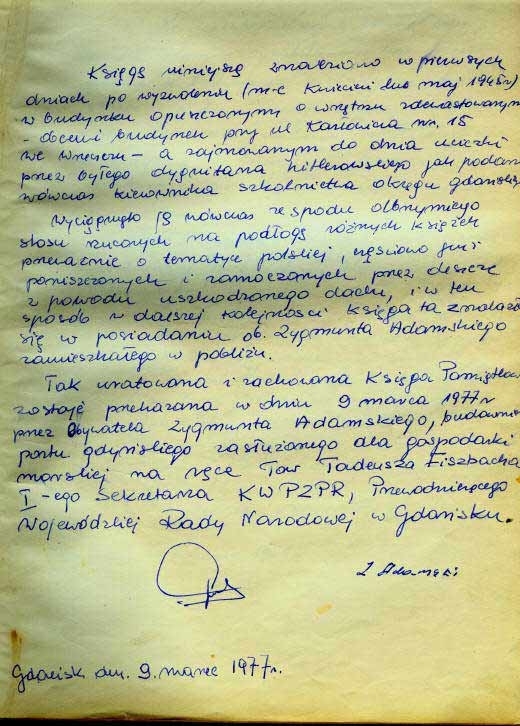 Księgę niniejszą znaleziono w pierwszych
dniach po wyzwoleniu (m-c kwiecień lub maj 1945r)
w budynku opuszczonym o wnętrzu zdewastowanym
- obecnie budynek przy ul Karłowicza nr. 15
we Wrzeszczu - a zajmowanym do dnia ucieczki
przez byłego dygnitarza hitlerowskiego jak podano
wówczas kierownika szkolnictwa okręgu gdańskiego
Wyciągnięto ją wówczas ze spodu olbrzymiego
stosu rzuconych na podłogę różnych książek
przeważnie o tematyce polskiej, częściowo już
poniszczonych i zamoczonych przez deszcze
z powodu uszkodzonego dachu, i w ten
sposób w dalszej kolejności Księga ta znalazła
się w posiadaniu ob. Zygmunta Adamskiego
zamieszkałego w pobliżu.
Tak uratowana i zachowana Księga Pamiątkowa
zostaje przekazana w dniu 9 marca 1977r
przez Obywatela Zygmunta Adamskiego, budowniczego
portu gdyńskiego zasłużonego dla gospodarki
morskiej na ręce Tow Tadeusza Fiszbacha
I-ego Sekretarza KW PZPR, Przewodniczącego
Wojewódzkiej Rady Narodowej w Gdańsku.
Z Adamski
Gdańsk dn. 9. marzec 1977r.